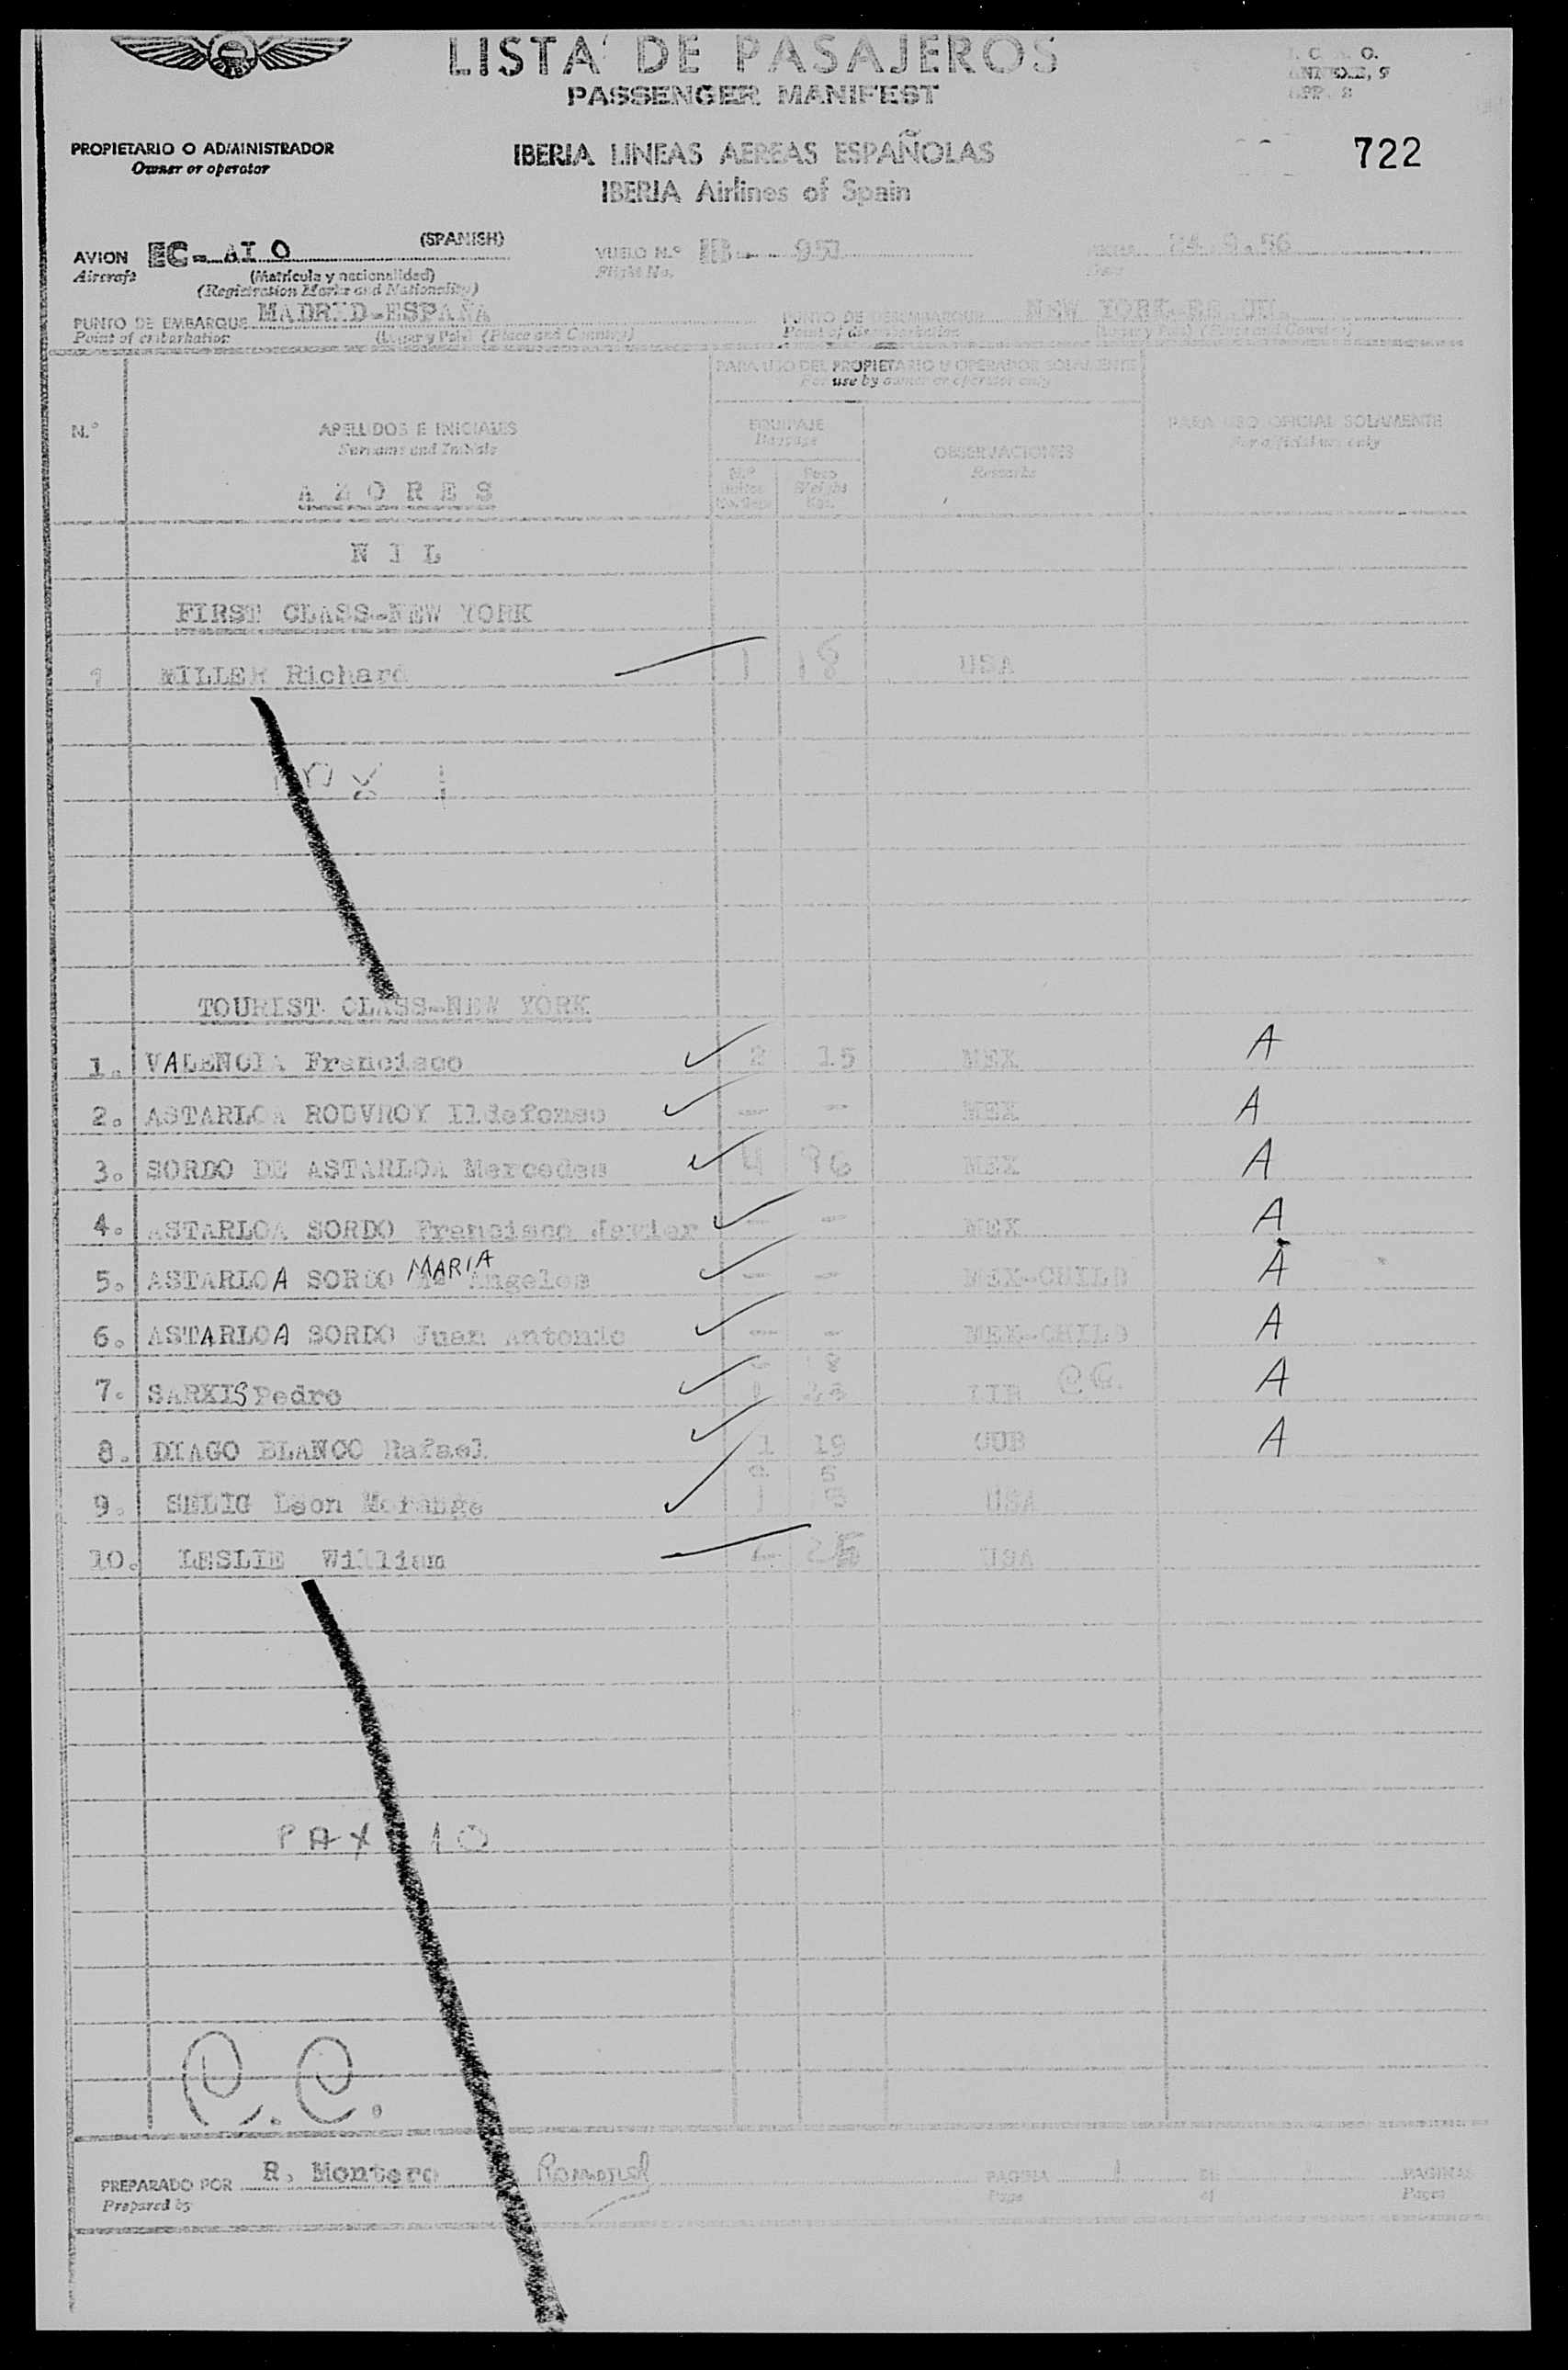 LISTA DE PASAJEROS
PASSENGER MANIFEST
PROPIETARIO O ADMINISTRADOR
Owner or operator
IBERIA LINEAS AEREAS ESPAÑOLAS
IBERIA Airlines of Spain
722
AVION EC-AIO (SPANISH) VUELO N.º IB-
Aircraft (Matrícula y nacionalidad) Flight No.
(Registration Marks and Nationality)
PUNTO DE EMBARQUE MADRID-ESPAÑA PUNTO DE DESEMBARQUE NEW YORK
Point of embarkation (Lugar y País) (Place and Country) Point of disembarkation (Lugar y País) (Place and Country)
PARA USO DEL PROPIETARIO U OPERADOR SOLAMENTE
For use by owner or operator only
N.º APELLIDOS E INICIALES EQUIPAJE OBSERVACIONES PARA USO OFICIAL SOLAMENTE
Surname and Initials Baggage Remarks For official use only
N.º Peso
Weight
AZORES
NIL
FIRST CLASS-NEW YORK
1 MILLER Richard 1 18 USA
TOURIST CLASS-NEW YORK
1. VALENCIA Francisco 2 15 MEX A
2. ASTARLOA ROUVROY Ildefonso — - MEX A
3. SORDO DE ASTARLOA Mercedes 4 96 MEX A
4. ASTARLOA SORDO Francisco Javier — - MEX A
5. ASTARLOA SORDO MARIA Angeles — - MEX-CHILD A
6. ASTARLOA SORDO Juan Antonio — - MEX-CHILD A
7. SARKIS Pedro A
8. DIAGO BLANCO Rafael 1 19 CUB A
9. SELIG Leon USA
10. LESLIE William USA
PAX 10
PREPARADO POR R. Montero PAGINA 1 DE PAGINAS
Prepared by Page of Pages